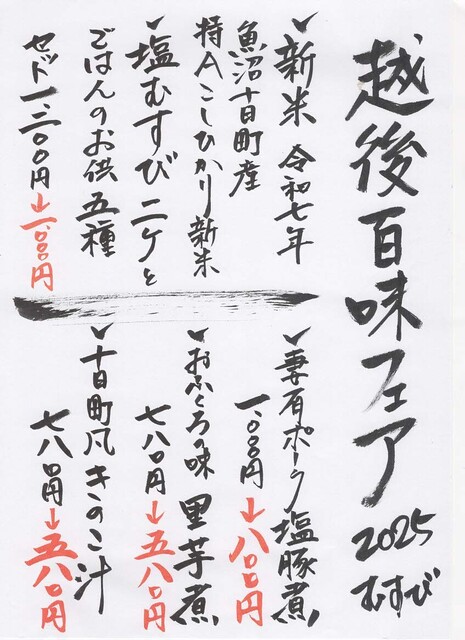 越後百味フェア 2025 むすび
✓新米 令和七年
魚沼十日町産
特Aこしひかり新米
✓塩むすび二ケと
ごはんのお供 五種
セット 一、三〇〇円→一、〇〇〇円
✓妻有ポーク塩豚煮
一、〇〇〇円→八〇〇円
✓おふくろの味 里芋煮
七八〇円→五八〇円
✓十日町風 きのこ汁
七八〇円→五八〇円